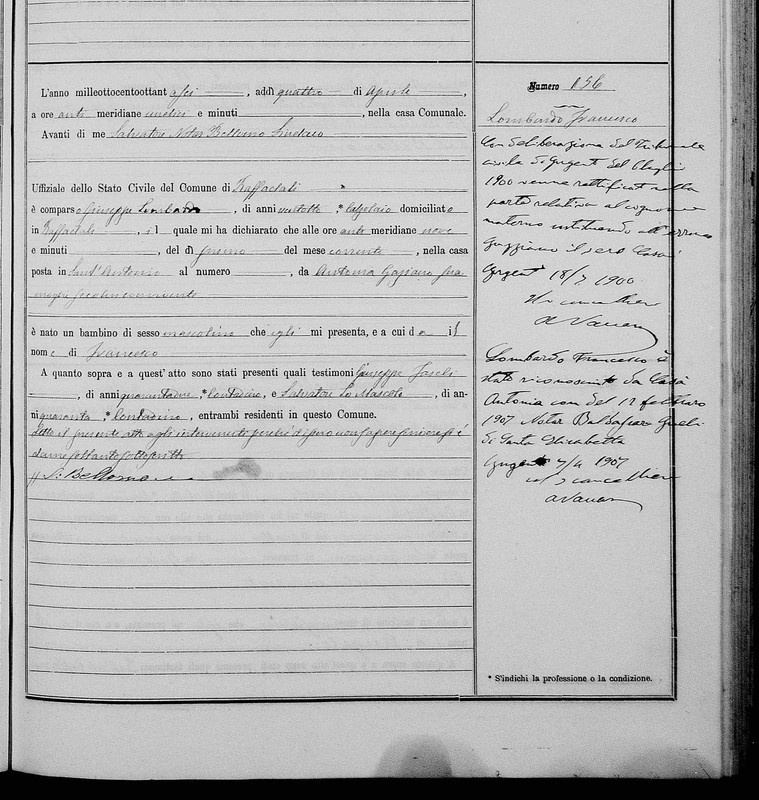 L'anno milleottocentoottant asei, addì quattro di Aprile,
a ore anti meridiane undici e minuti, nella casa Comunale.
Avanti di me Salvatore Notar Bellomo Sindaco
Uffiziale dello Stato Civile del Comune di Raffadali
è comparso Giuseppe Lombardo, di anni ventotto, * Calzolaio domiciliato
in Raffadali, il quale mi ha dichiarato che alle ore anti meridiane nove
e minuti, del dì primo del mese corrente, nella casa
posta in Sant'Antonio al numero, da Antonia Gaziano sua
moglie secolui convivente
è nato un bambino di sesso mascolino che egli mi presenta, e a cui dà il
nome di Francesco
A quanto sopra e a quest'atto sono stati presenti quali testimoni Giuseppe
, di anni quarantadue, * Contadino, e Salvatore Lo Mascolo, di an-
ni quaranta, * Contadino, entrambi residenti in questo Comune.
Letto il presente atto agli intervenuti perché disero non sapere firmare si è
da me soltanto sottoscritto
S. Bellomo
Numero 156
Lombardo Francesco
Con deliberazione del Tribunale
civile di Girgenti del Luglio
1900 venne rettificato nella
parte relativa al cognome
materno sostituendo all'erroneo
Gazziano il vero Casà
Girgenti 18/7 1900
Il cancelliere
Lombardo Francesco è
stato riconosciuto da Casà
Antonia con del 12 febbraio
1907 Notar Baldassare
di Santa Elisabetta
Girgenti 7/4 1907
Il cancelliere
* S'indichi la professione o la condizione.